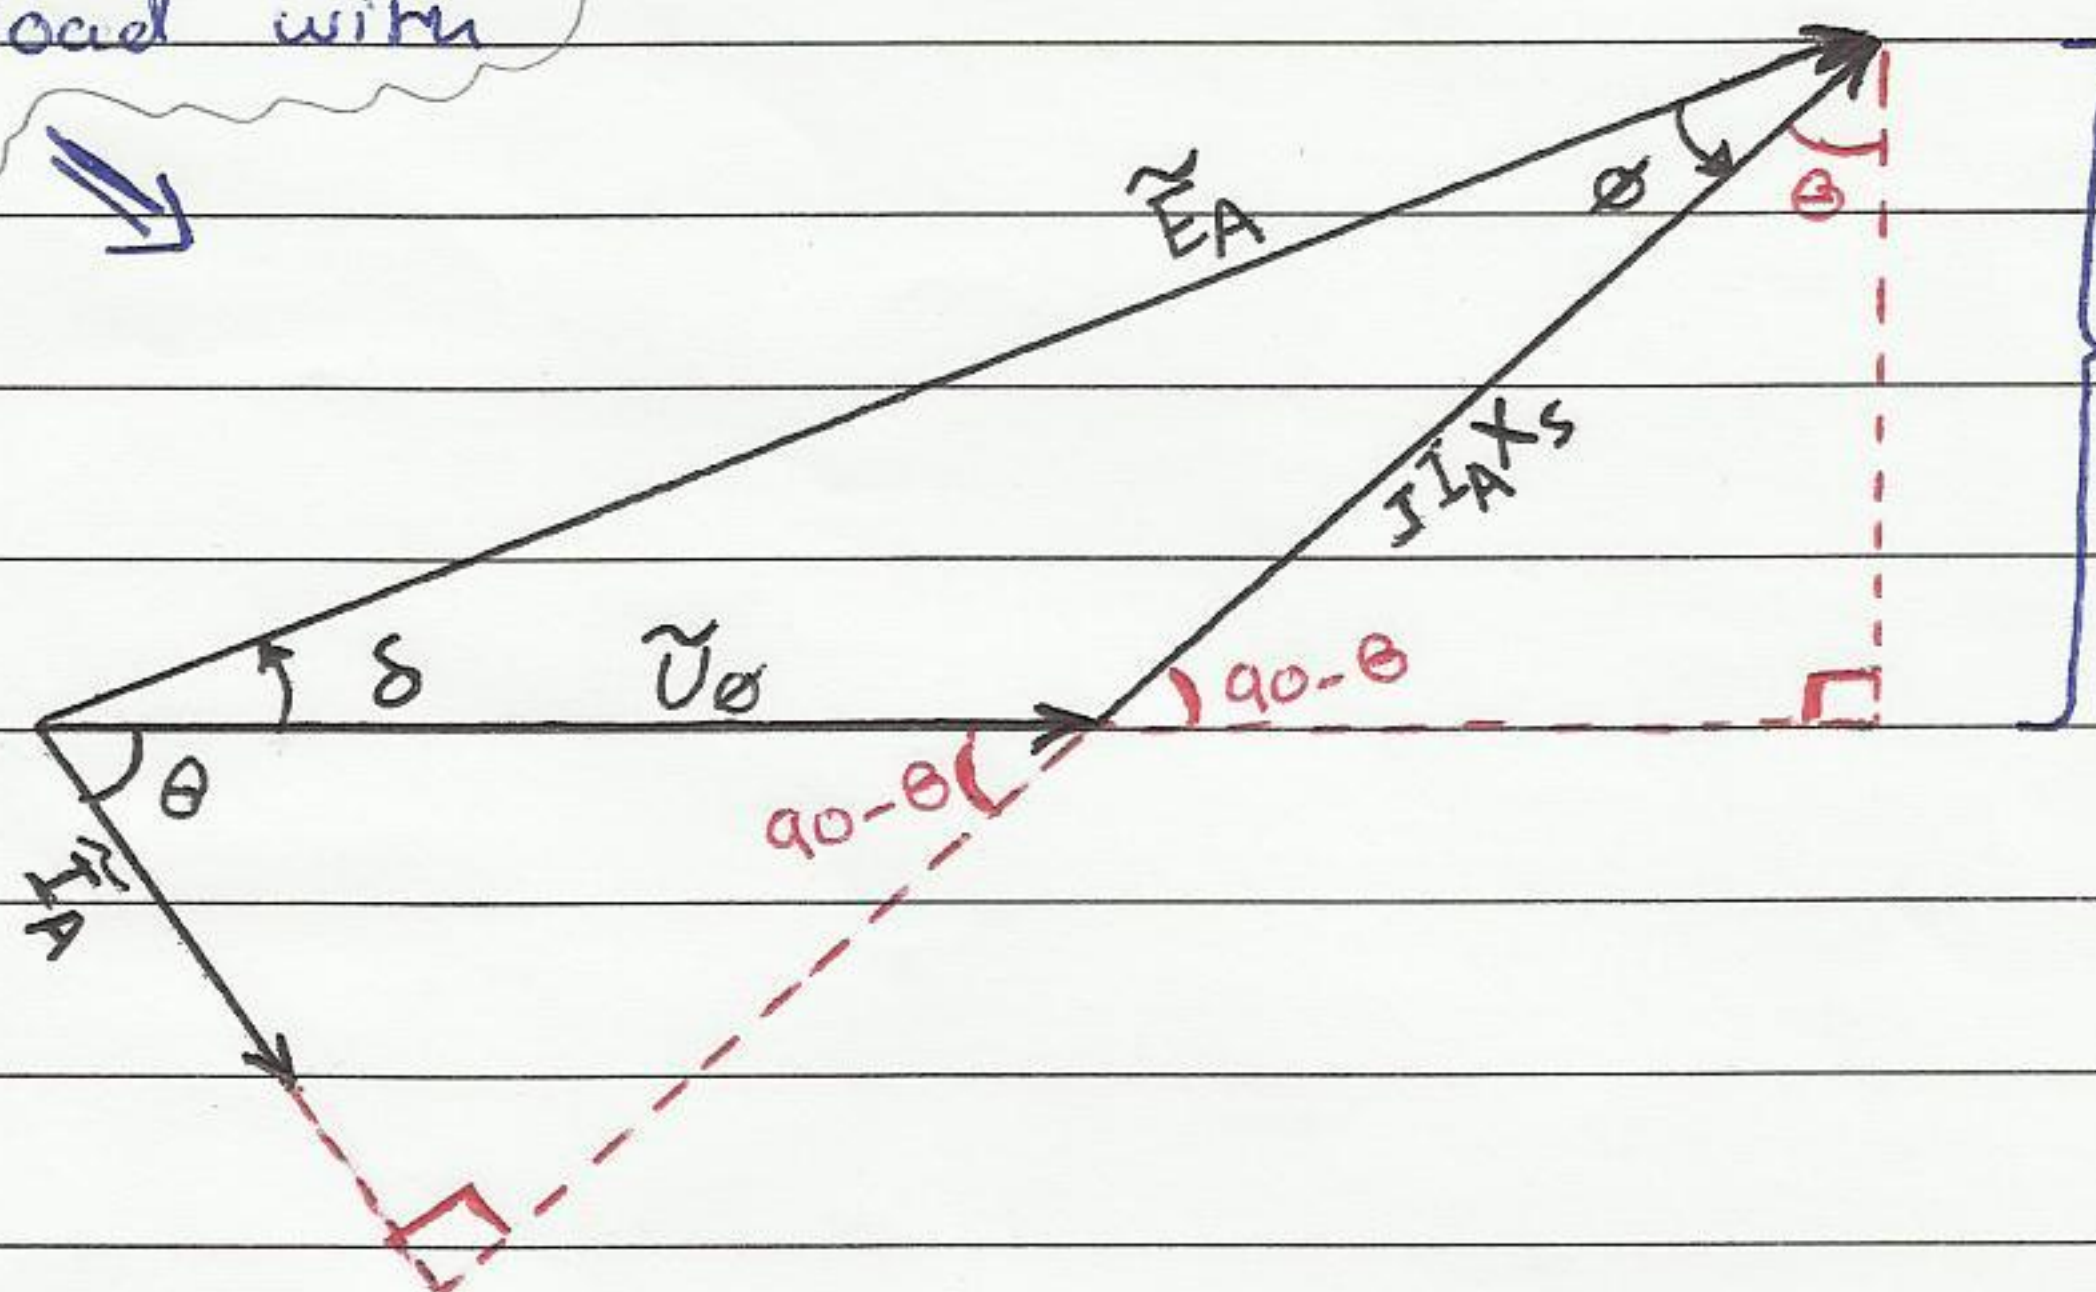 oad with
ẼA
ø
θ
jIAXs
δ
Ũø
90-θ
θ
90-θ
ĨA